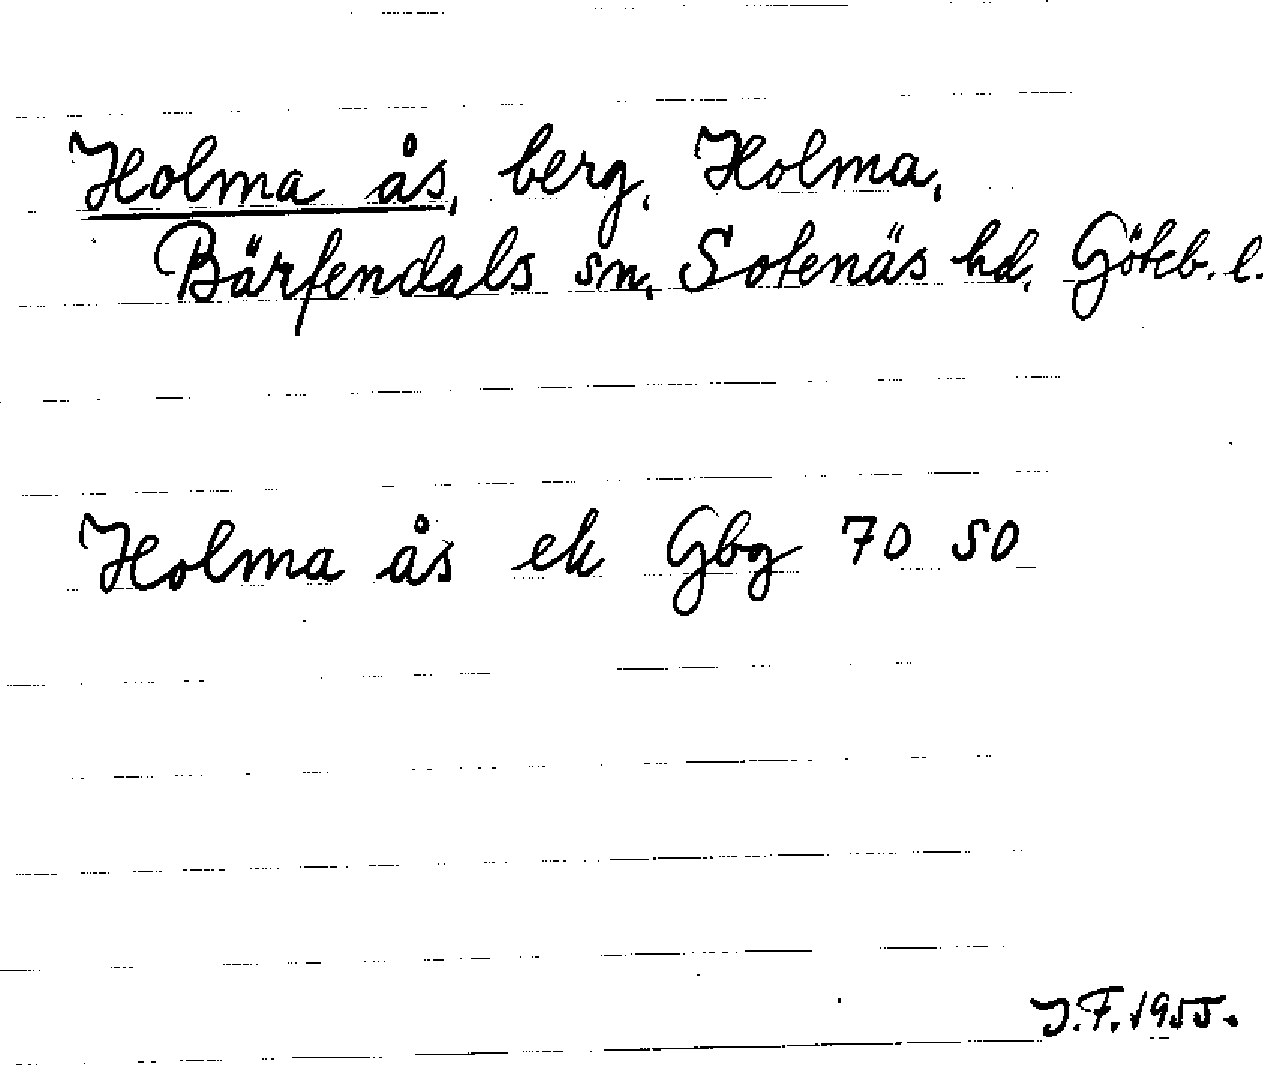 Holma ås, berg, Holma,
Bärfendals sn, Sotenäs hd, Göteb. l.
Holma ås ek Gbg 70 SO
J.F. 1955.